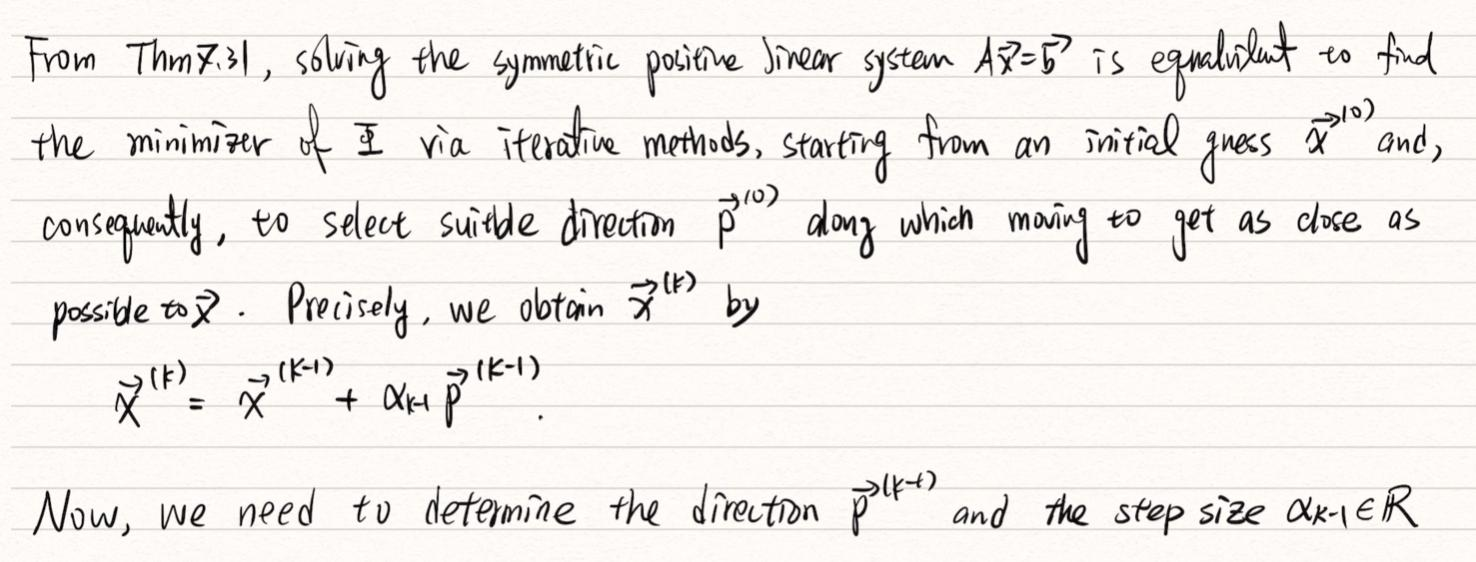 From Thm 7.31, solving the symmetric positive linear system A\vec{x}=\vec{b} is equalvilent to find
the minimizer of Φ via iterative methods, starting from an initial guess \vec{x}^{(0)} and,
consequently, to select suitble direction \vec{p}^{(0)} along which moving to get as close as
possible to \vec{x}. Precisely, we obtain \vec{x}^{(k)} by
\vec{x}^{(k)} = \vec{x}^{(k-1)} + α_{k-1} \vec{p}^{(k-1)}.
Now, we need to determine the direction \vec{p}^{(k-1)} and the step size α_{k-1} ∈ ℝ